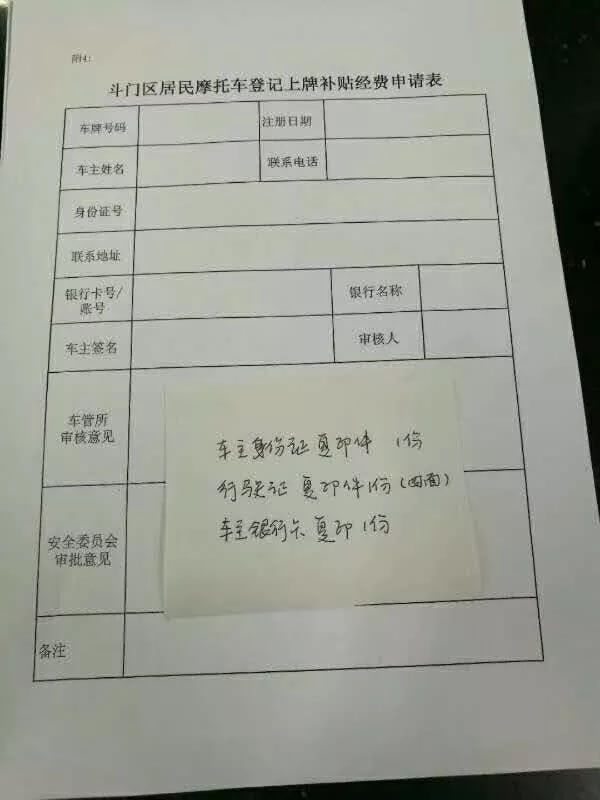 附4:
斗门区居民摩托车登记上牌补贴经费申请表
车牌号码 注册日期
车主姓名 联系电话
身份证号
联系地址
银行卡号/ 银行名称
账号
车主签名 审核人
车管所
审核意见
车主身份证 复印件 1份
行驶证 复印件1份(四面)
车主银行卡 复印1份
安全委员会
审批意见
备注